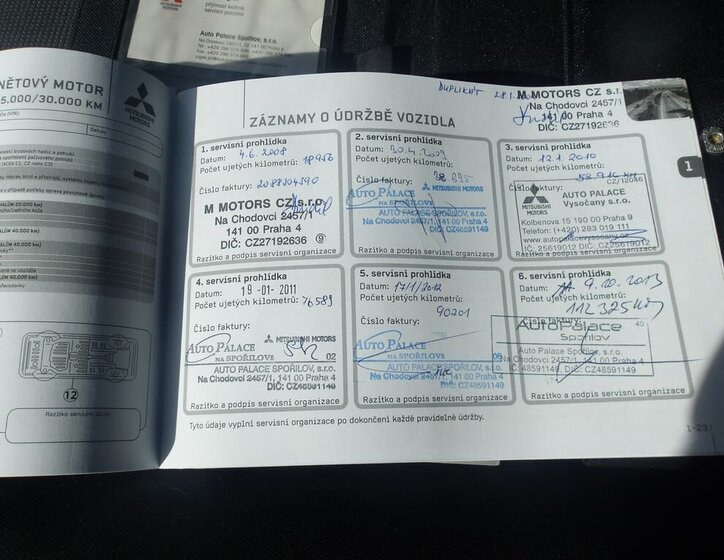 přijmací technik
servisní poradce
Auto Palace Spořilov, s.r.o.
Na Chodovci 2457/1, 141 00 Praha 4
MITSUBISHI
MOTORS
NĚTOVÝ MOTOR
5.000/30.000 KM
MITSUBISHI
MOTORS
Datum:
DUPLIKÁT
M MOTORS CZ s.r.
Na Chodovci 2457/1
141 00 Praha 4
DIČ: CZ27192636
ZÁZNAMY O ÚDRŽBĚ VOZIDLA
1
1. servisní prohlídka
Datum: 4.6.2008
Počet ujetých kilometrů: 18956
Číslo faktury: 2088104390
M MOTORS CZ s.r.o.
Na Chodovci 2457/1
141 00 Praha 4
DIČ: CZ27192636 9
Razítko a podpis servisní organizace
2. servisní prohlídka
Datum: 30.4.2009
Počet ujetých kilometrů:
38.895
Číslo faktury:
MITSUBISHI MOTORS
AUTO PALACE
NA SPOŘILOVĚ
AUTO PALACE SPOŘILOV, s.r.o.
Na Chodovci 2457/1, 141 00 Praha 4
DIČ: CZ48591149
Razítko a podpis servisní organizace
3. servisní prohlídka
Datum: 12.1.2010
Počet ujetých kilometrů:
Číslo faktury:
CZ/12046
MITSUBISHI
MOTORS
AUTO PALACE
Vysočany s.r.o.
Kolbenova 15 190 00 Praha 9
Telefon: (+420) 283 019 111
www.autopalacevysocany.cz
IČ: 25619012 DIČ: CZ25619012
Razítko a podpis servisní organizace
4. servisní prohlídka
Datum: 19 -01- 2011
Počet ujetých kilometrů:
76589
Číslo faktury:
MITSUBISHI MOTORS
AUTO PALACE
NA SPOŘILOVĚ
02
AUTO PALACE SPOŘILOV, s.r.o.
Na Chodovci 2457/1, 141 00 Praha 4
DIČ: CZ48591149
Razítko a podpis servisní organizace
5. servisní prohlídka
Datum: 17/1/2012
Počet ujetých kilometrů:
90201
Číslo faktury:
AUTO PALACE
NA SPOŘILOVĚ
AUTO PALACE SPOŘILOV, s.r.o.
Na Chodovci 2457/1, 141 00 Praha 4
DIČ: CZ48591149
Razítko a podpis servisní organizace
6. servisní prohlídka
Datum: 9.10.2013
Počet ujetých kilometrů:
112 325 km
Číslo faktury:
AutoPalace 40
Spořilov
Auto Palace Spořilov, s.r.o.
Na Chodovci 2457/1, 141 00 Praha 4
IČ: 48591149, DIČ: CZ48591149
Razítko a podpis servisní organizace
Tyto údaje vyplní servisní organizace po dokončení každé pravidelné údržby.
1-23
12
Razítko servisní dílny